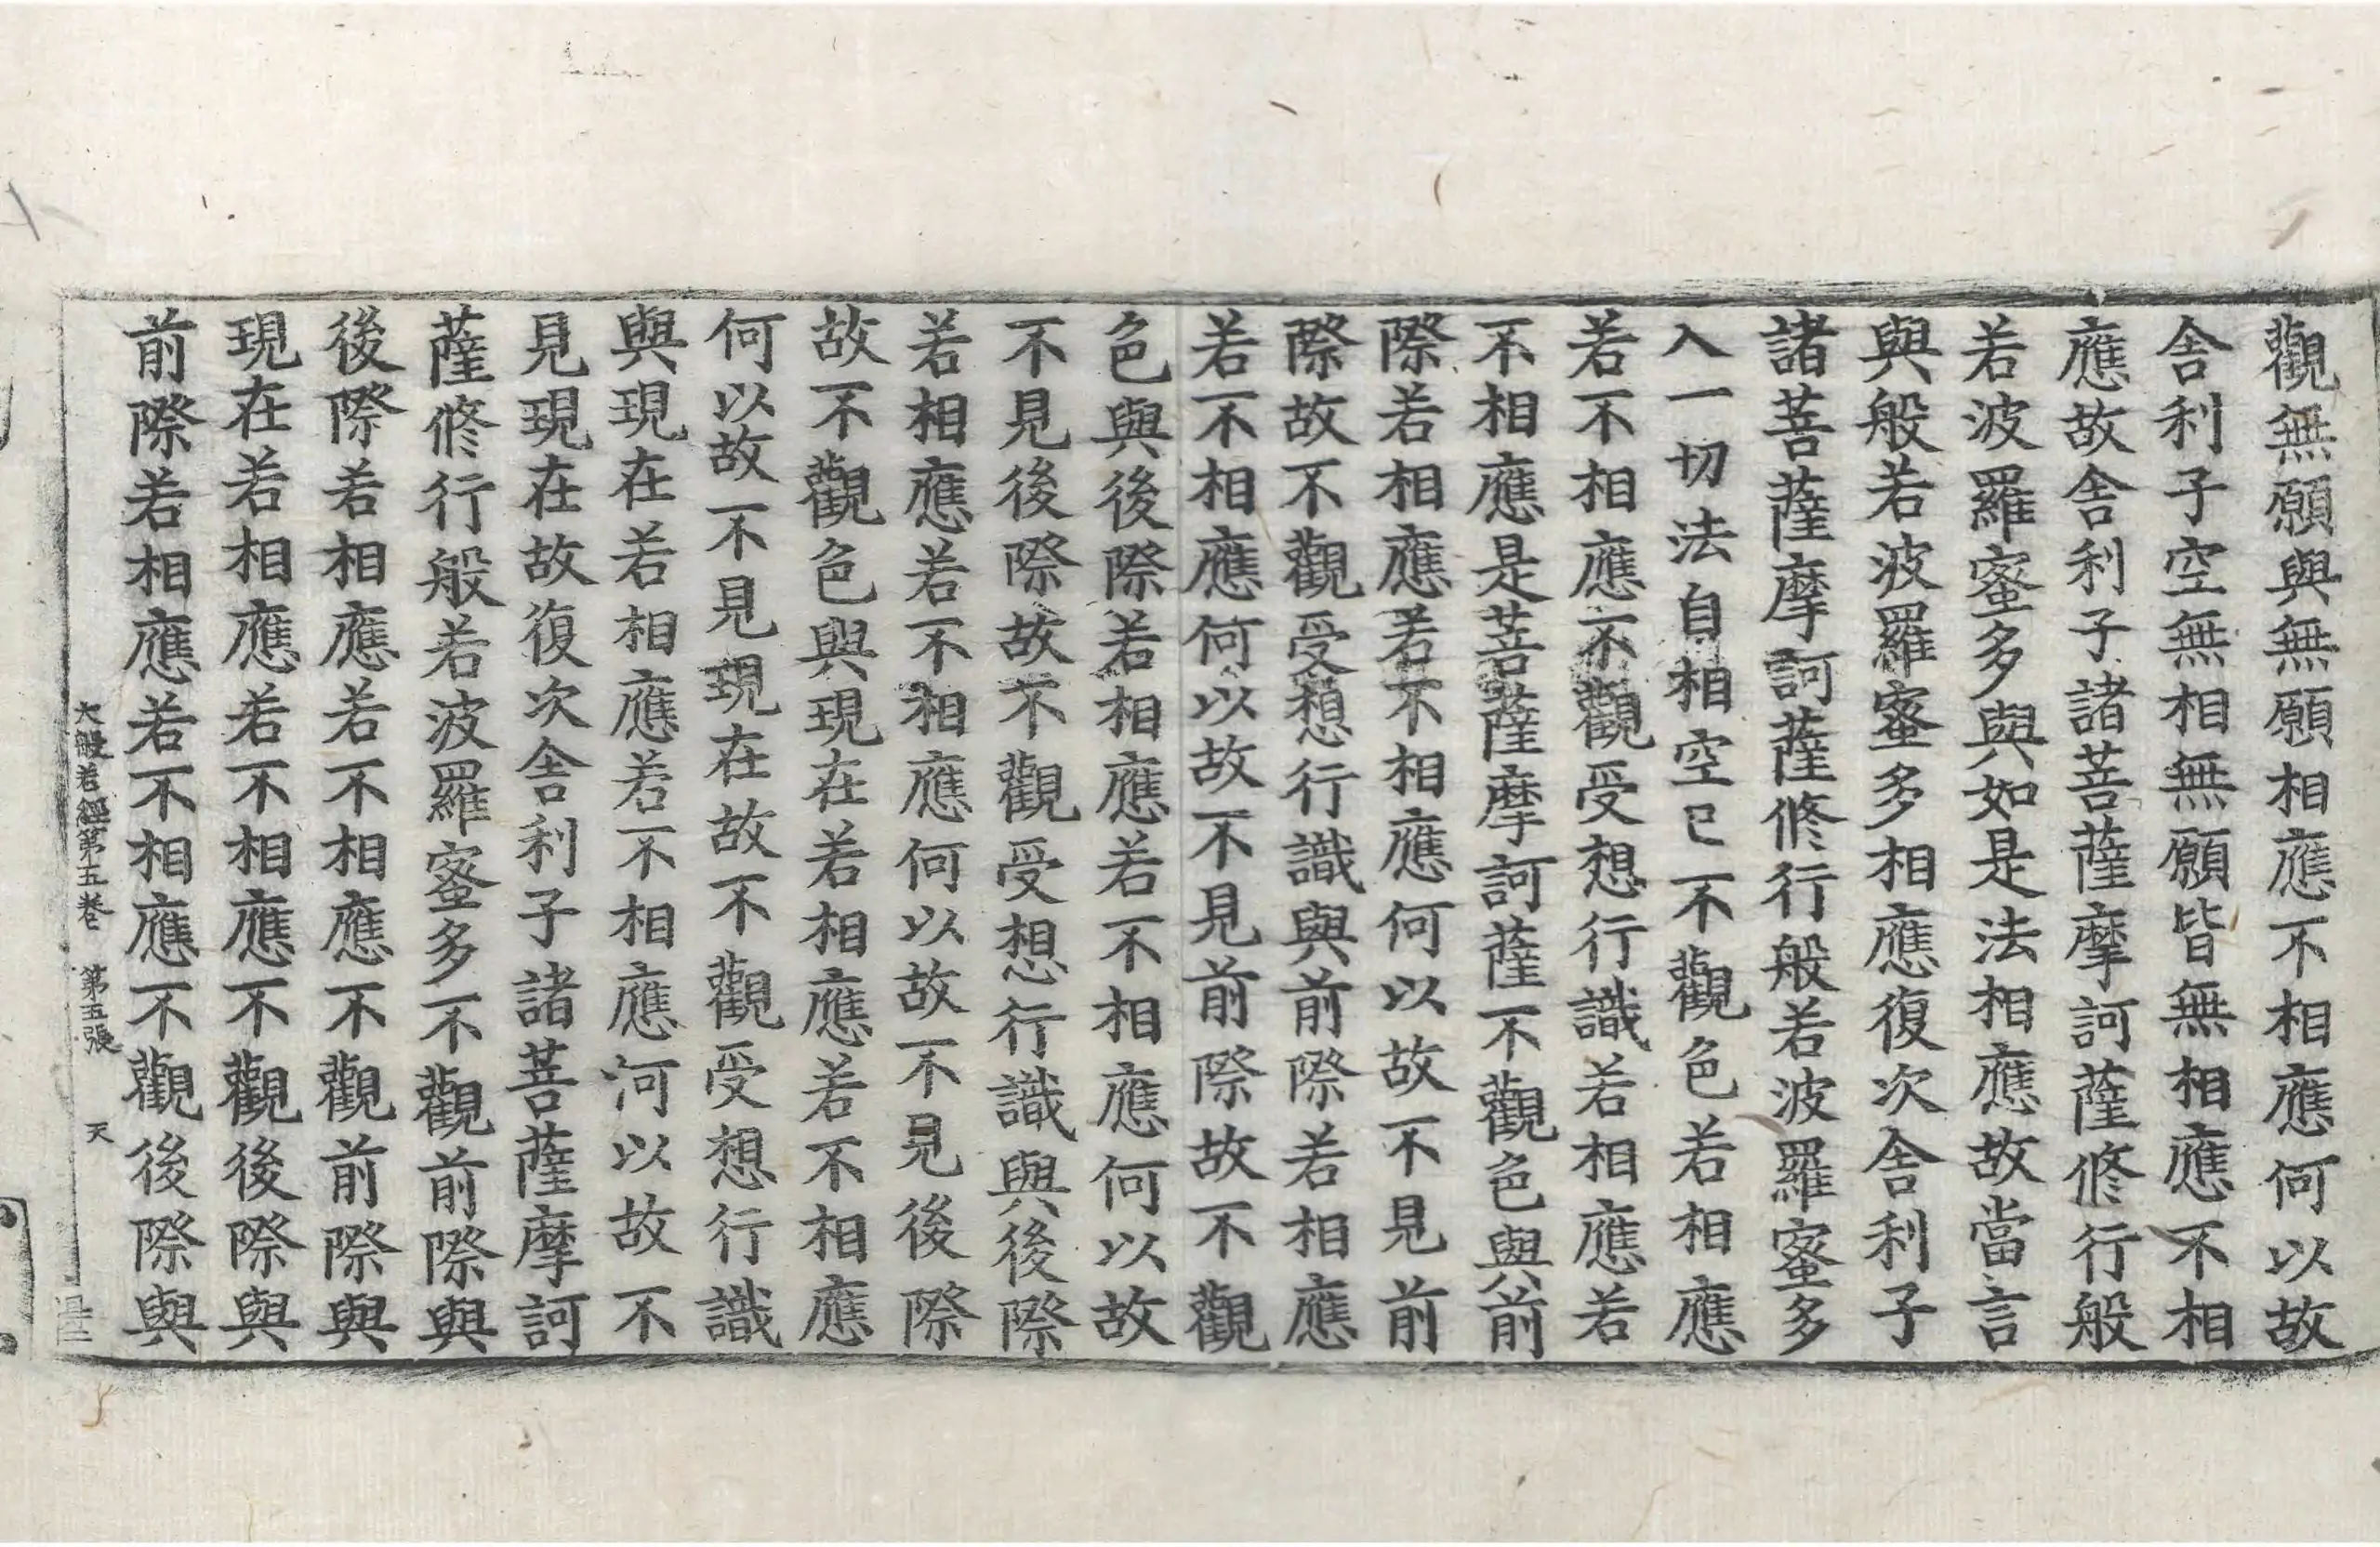 觀無願與無願相應不相應何以故
舍利子空無相無願皆無相應不相
應故舍利子諸菩薩摩訶薩修行般
若波羅蜜多與如是法相應故當言
與般若波羅蜜多相應復次舍利子
諸菩薩摩訶薩修行般若波羅蜜多
入一切法自相空已不觀色若相應
若不相應不觀受想行識若相應若
不相應是菩薩摩訶薩不觀色與前
際若相應若不相應何以故不見前
際故不觀受想行識與前際若相應
若不相應何以故不見前際故不觀
色與後際若相應若不相應何以故
不見後際故不觀受想行識與後際
若相應若不相應何以故不見後際
故不觀色與現在若相應若不相應
何以故不見現在故不觀受想行識
與現在若相應若不相應河以故不
見現在故復次舍利子諸菩薩摩訶
薩修行般若波羅蜜多不觀前際與
後際若相應若不相應不觀前際與
現在若相應若不相應不觀後際與
前際若相應若不相應不觀後際與
大般若經第五卷 第五張 天